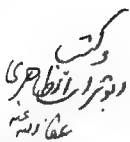 وكتب
ابو تراب الظاهري
عفا الله عنه